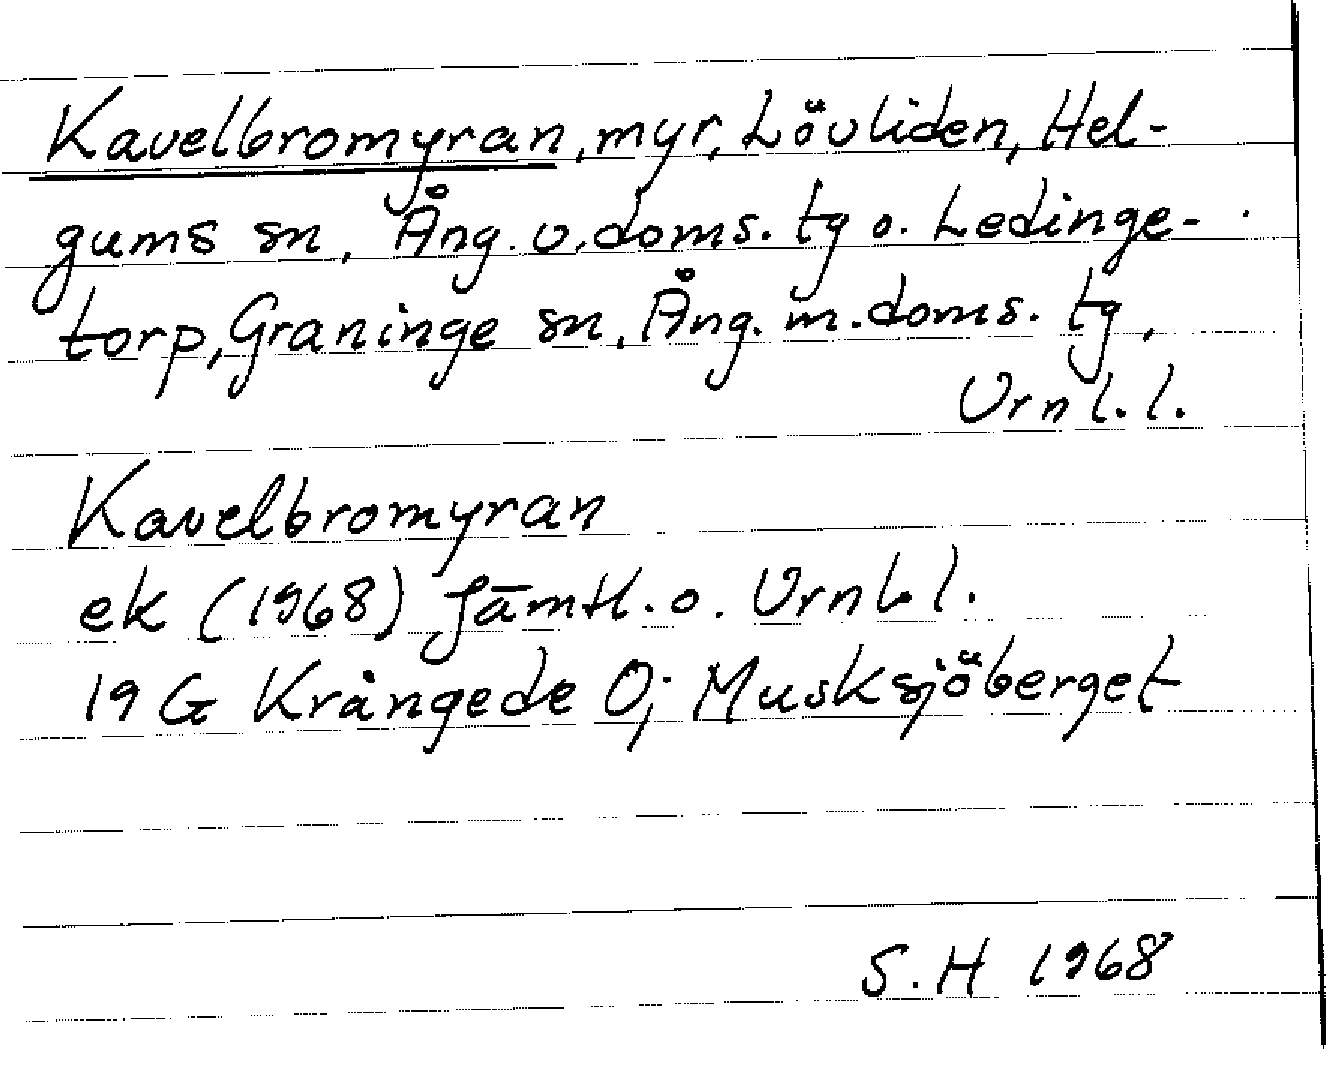 Kavelbromyran, myr, Lövliden, Hel-
gums sn, Ång. v. doms. tg o. Ledinge-
torp, Graninge sn, Ång. m. doms. tg,
Vrnl. l.
Kavelbromyran
ek (1968) Jämtl. o. Vrnl. l.
19 G Krångede O; Musksjöberget
S. H 1968